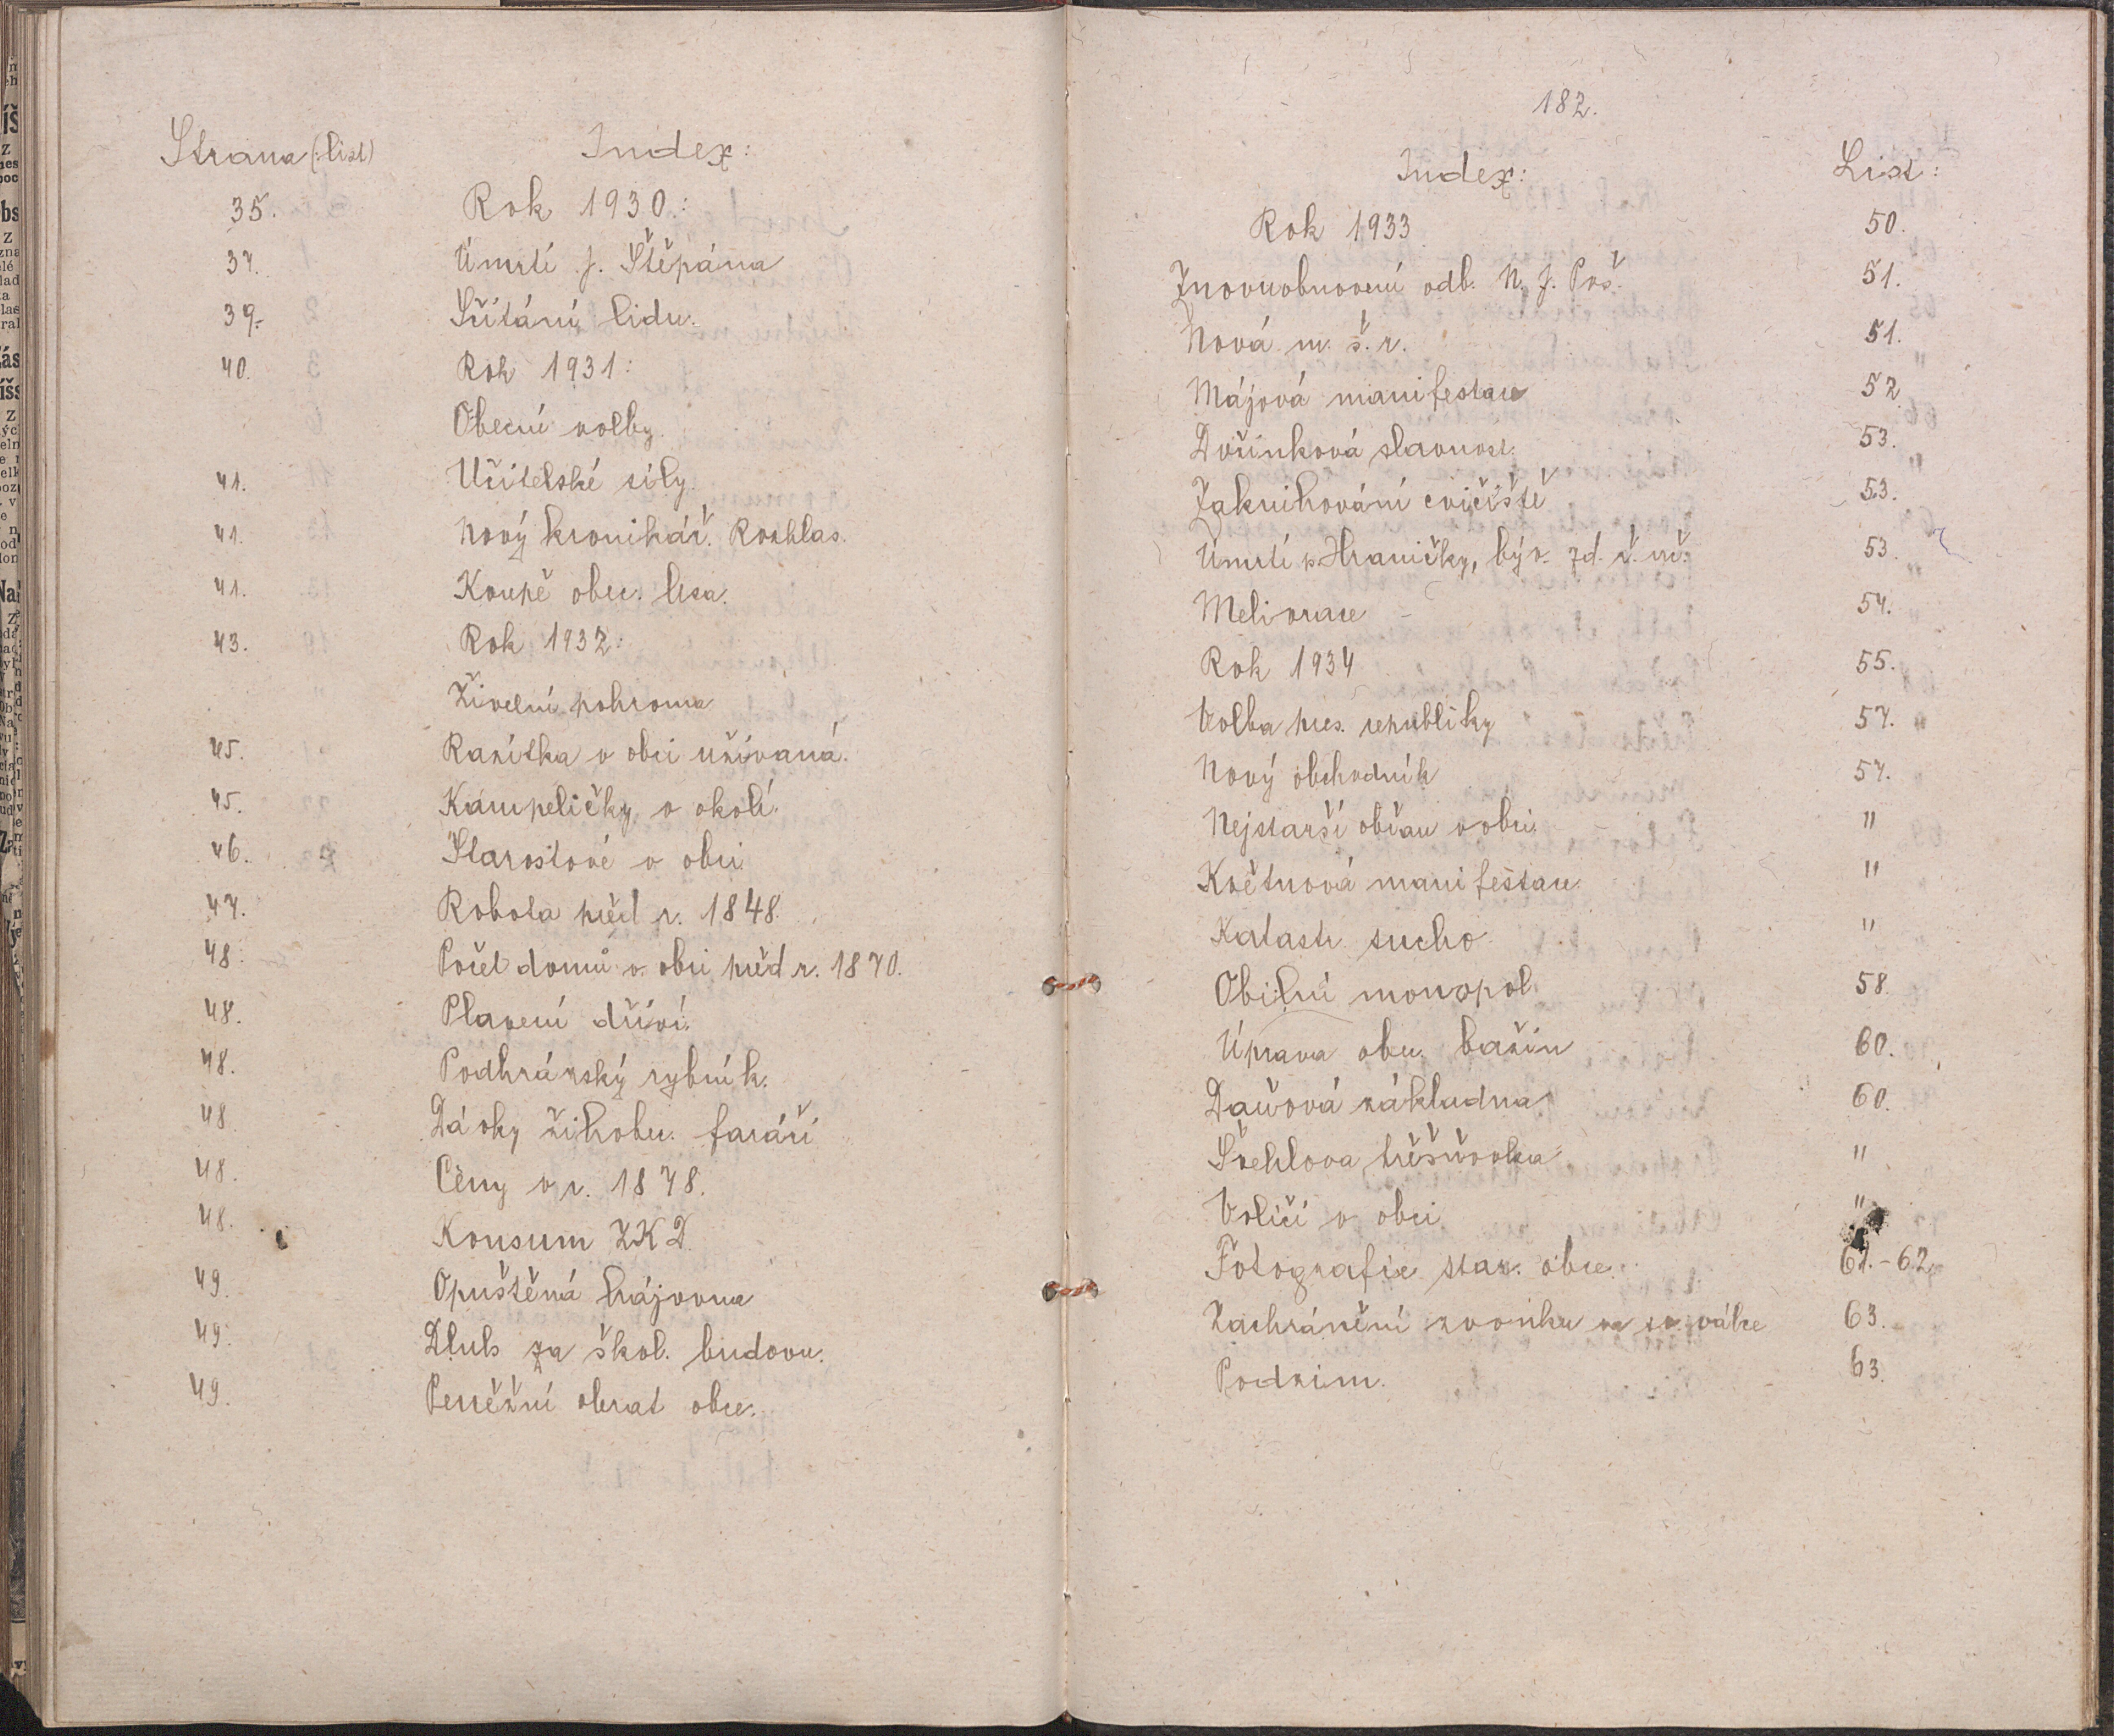 Strana (: list) Index:
35. Rok 1930.:
37. Úmrtí J. Štěpána
39.- Sčítání lidu.
40. Rok 1931:
Obecní volby.
41. Učitelské síly.
41. Nový kronikář. Rozhlas.
41. Koupě obec. lesa.
43. Rok 1932:
Živelní pohroma
45. Razítka v obci užívaná.
45. Kampeličky v okolí.
46. Starostové v obci
47. Robota před r. 1848.
48. Počet domů v obci před r. 1870.
48. Plavení dříví.
48. Podhrázský rybník.
48 Dávky žihobec. faráři
48. Ceny v r. 1878.
48. Konsum ZKD.
49. Opuštěná hájovna
49. Dluh za škol. budovu.
49. Peněžní obrat obce.
182.
Index: List:
Rok 1933 50.
Znovuobnovení odb. N. J. Poš. 51.
Nová m. š. r. 51.
Májová manifestace 52
Dožínková slavnost. 53.
Zaknihování cvičiště 53.
Úmrtí p. Hraničky, býv. zd. ř. uč. 53.
Meliorace - 54.
Rok 1934 55.
Volba pres. republiky 57.
Nový obchodník 57.
Nejstarší občan v obci. "
Květnová manifestace. "
Katastr. sucho. "
Obilní monopol 58.
Úprava obec. bažin 60.
Daňová základna 60.
Švehlova třešňovka "
Voliči v obci "
Fotografie star. obce. 61.-62.
Zachránění zvonku za sv. války 63.
Podzim. 63.